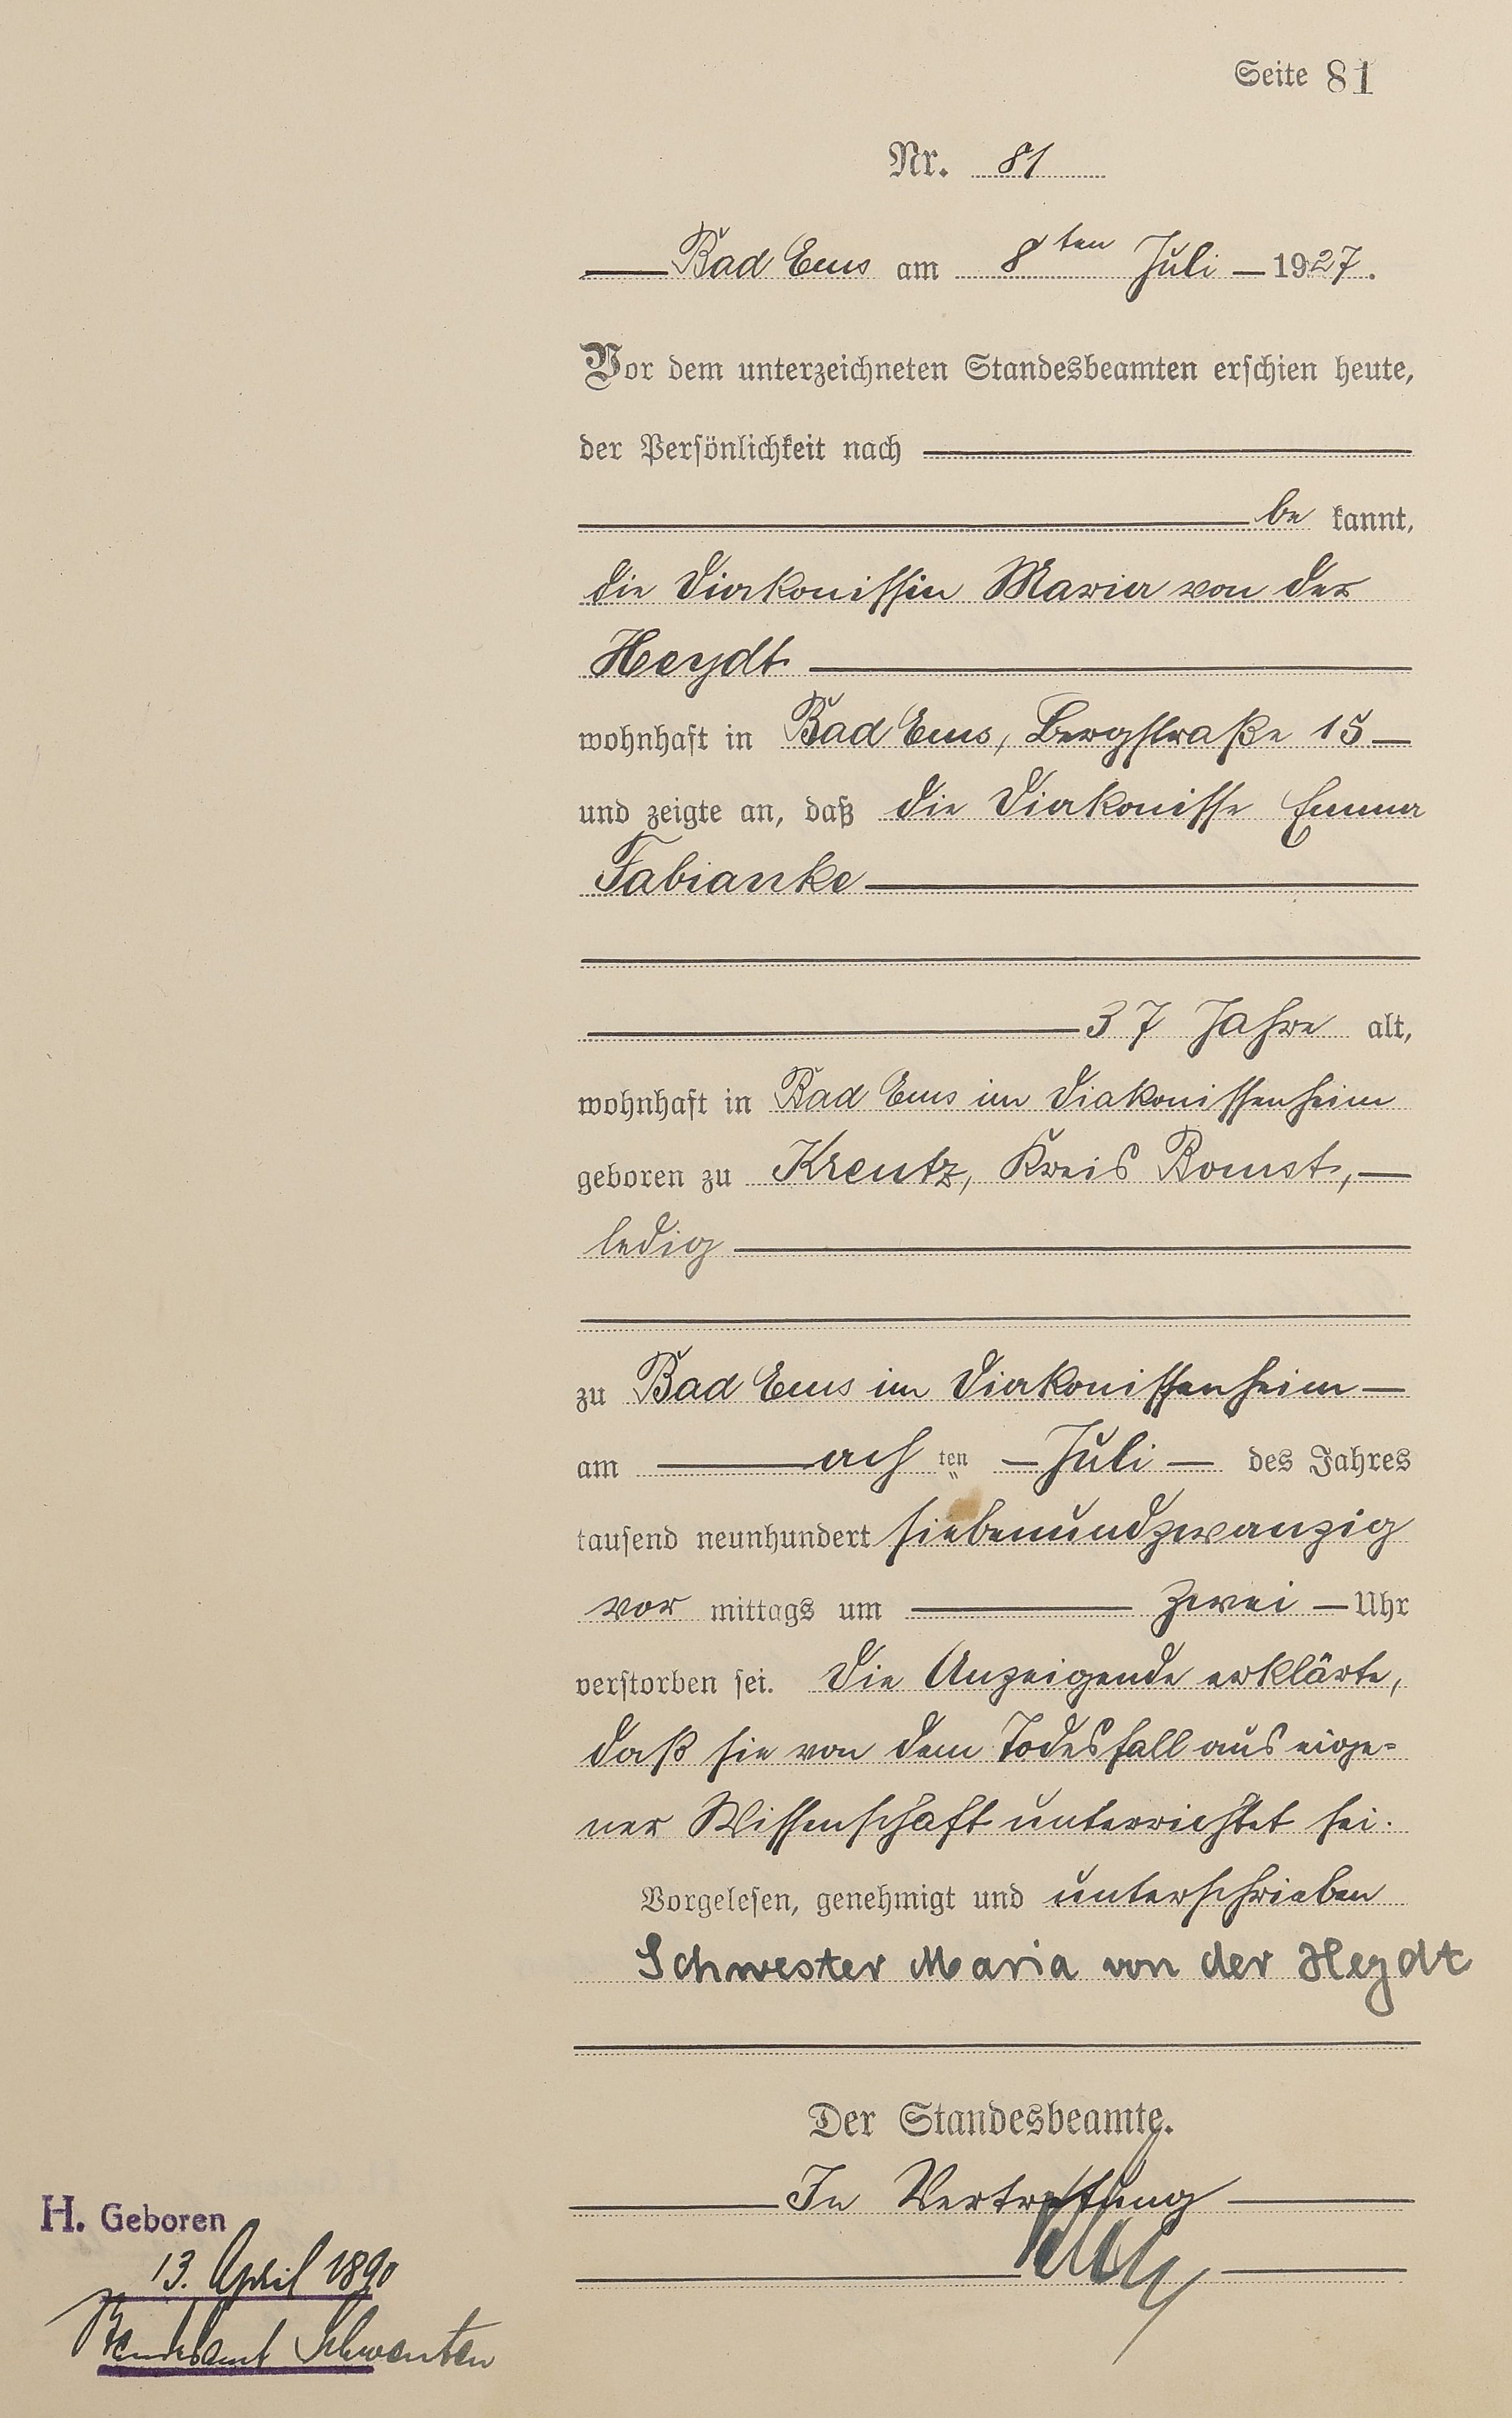 Seite 81
Nr. 81
Bad Ems am 8ten Juli 1927.
Vor dem unterzeichneten Standesbeamten erschien heute,
der Persönlichkeit nach
be kannt,
die Diakonissin Maria von der
Heydt
wohnhaft in Bad Ems, Bergstraße 15
und zeigte an, daß die Diakonisse Emma
Fabianke
37 Jahre alt,
wohnhaft in Bad Ems im Diakonissenheim
geboren zu Kreutz, Kreis Bomst,
ledig
zu Bad Ems im Diakonissenheim
am ach ten Juli des Jahres
tausend neunhundert siebenundzwanzig
vor mittags um zwei Uhr
verstorben sei. Die Anzeigende erklärte,
daß sie von dem Todesfall aus eige-
ner Wissenschaft unterrichtet sei.
Vorgelesen, genehmigt und unterschrieben
Schwester Maria von der Heydt
Der Standesbeamte.
In Vertretung
H. Geboren
13. April 1890
Standesamt Schwenten